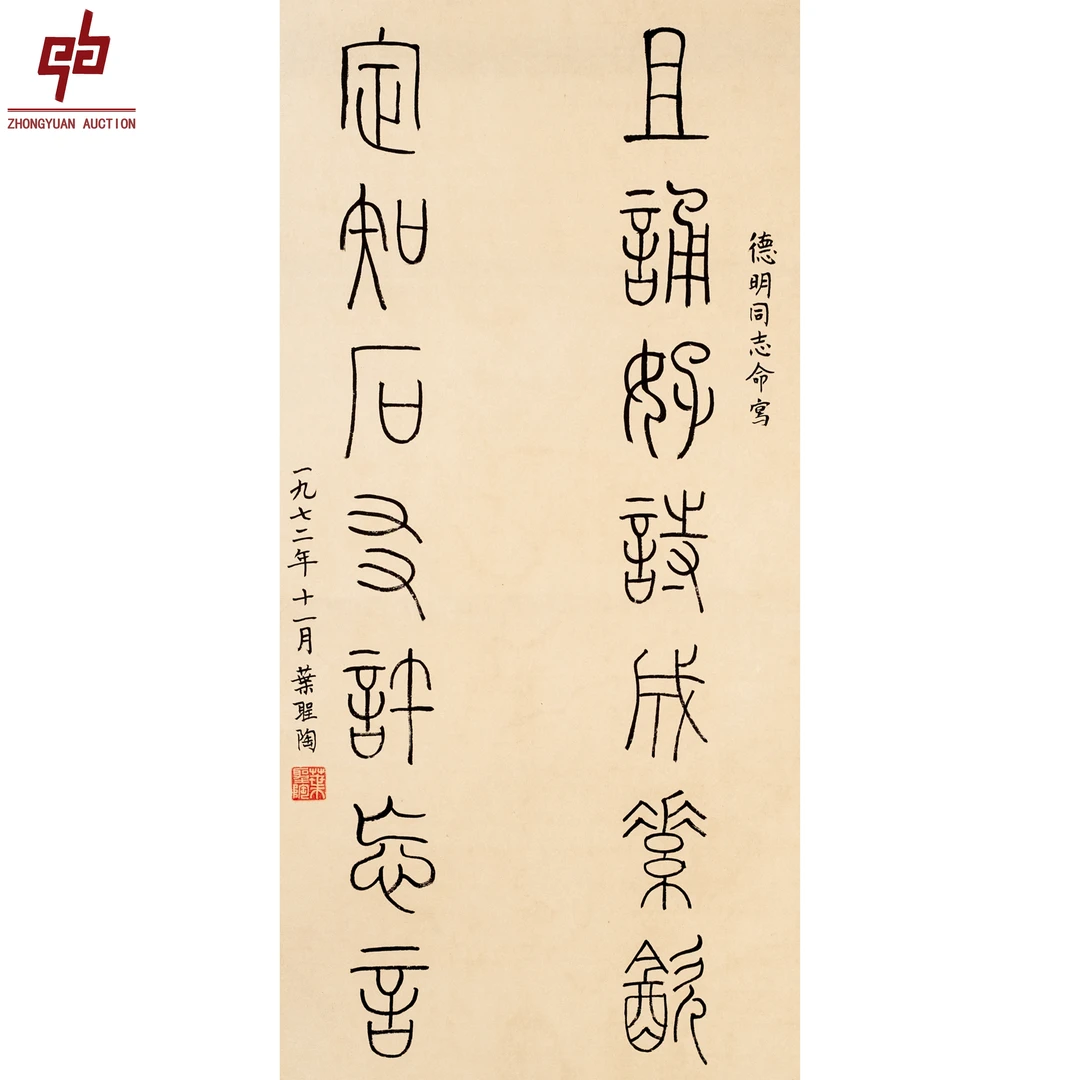 ZHONGYUAN AUCTION
德明同志命寫
且誦好詩成素飲
定知石友許忘言
一九七二年十一月葉聖陶
葉聖陶